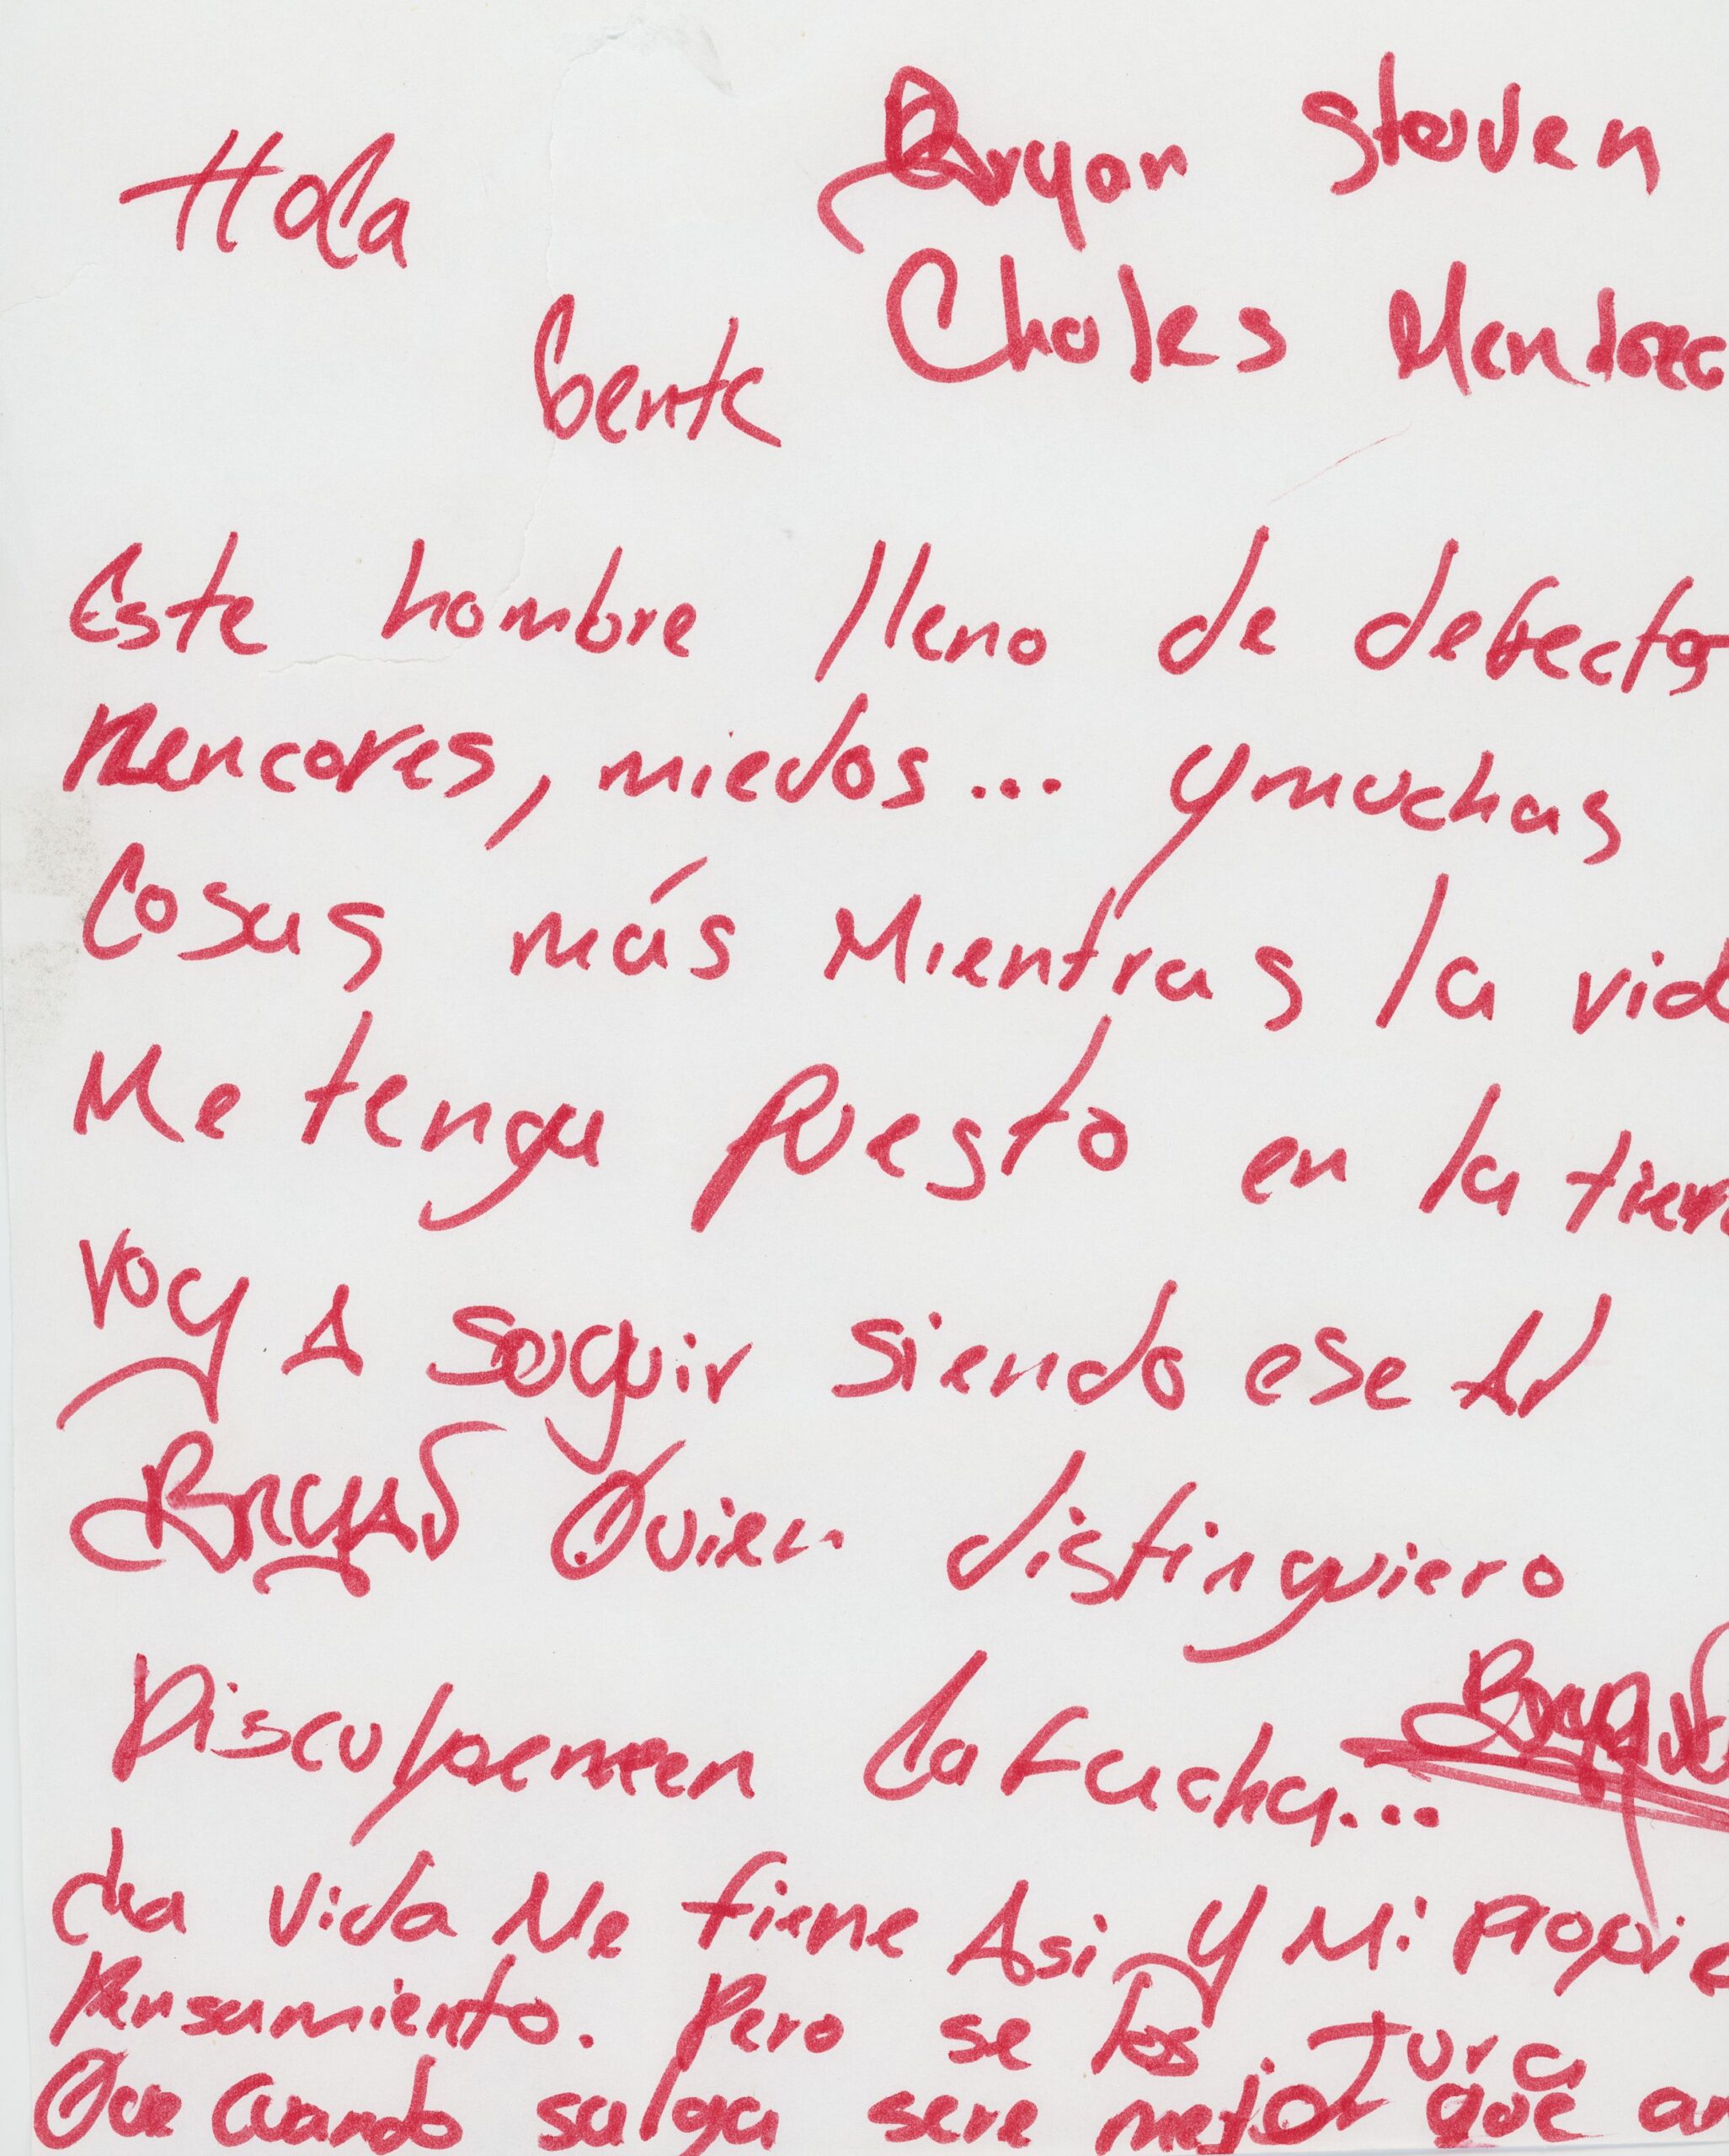 Hola
Gente
Bryan Steven
Choles Mendoza
Este hombre lleno de defectos
Rencores, miedos... y muchas
Cosas más Mientras la vid
Me tenga puesto en la tierr
voy A seguir siendo ese
Bryan Quien distinguiero
Disculpenmen La Facha...
La vida Me tiene Asi y Mi propie
Pensamiento. Pero se los Jura
Que Cuando salga sere mejor que an